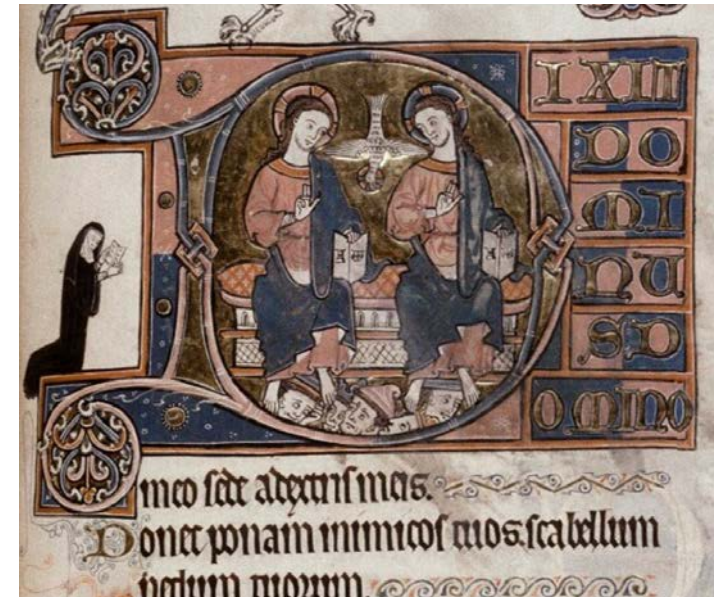 DIXIT
DO
MI
NU
S D
OMINO
A ω
A ω
meo sede adextris meis.
Donec ponam inimicos tuos. scabellum
pedum tuorum.